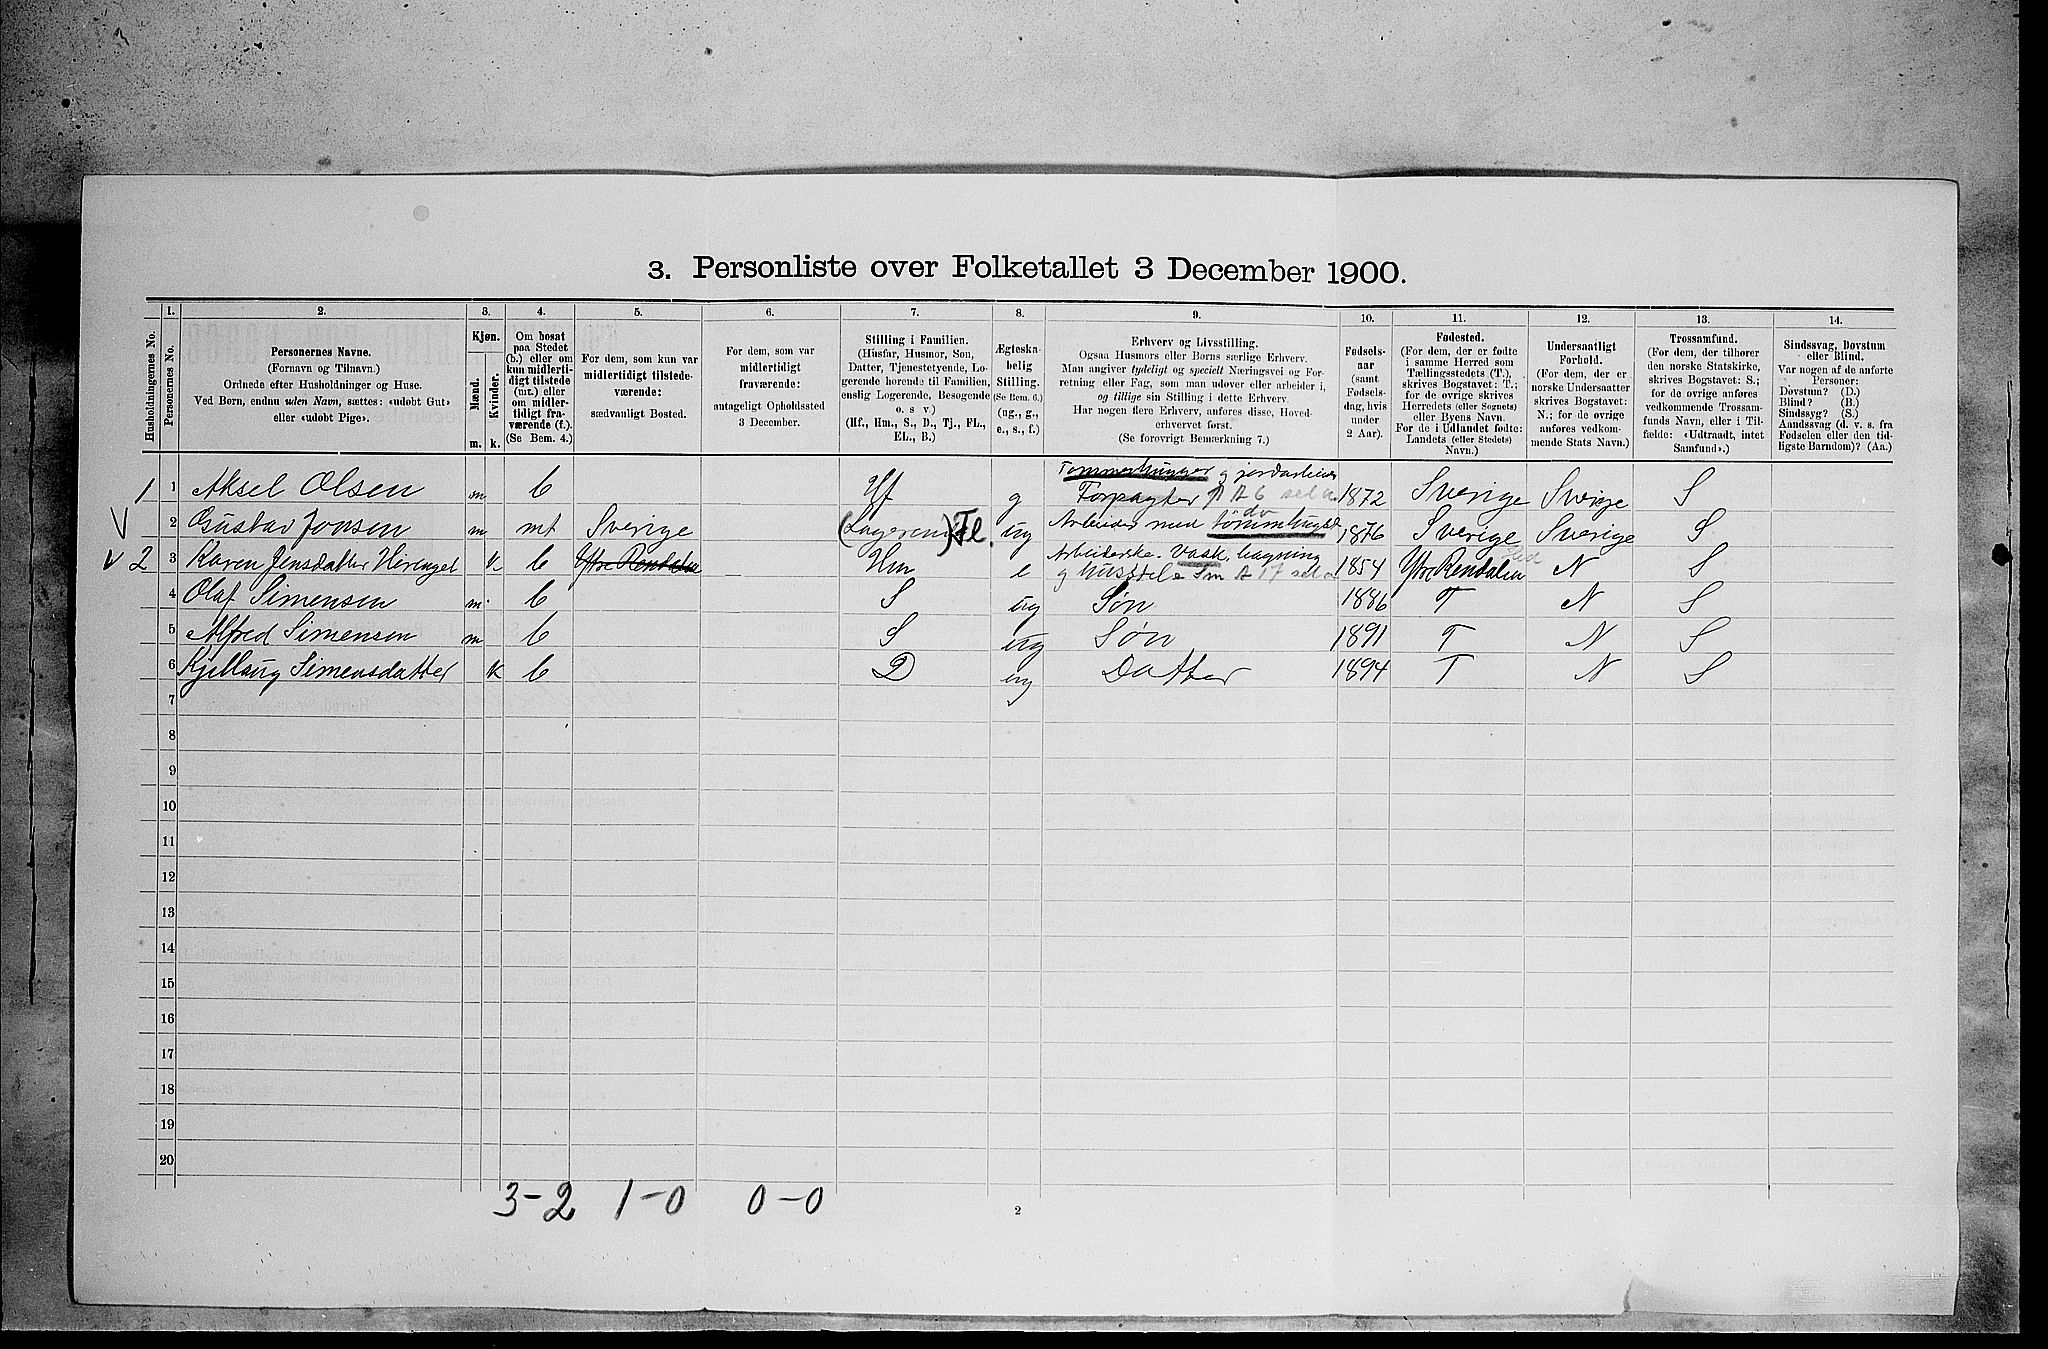 3. Personliste over Folketallet 3 December 1900.
1. 2. 3. 4. 5. 6. 7. 8. 9. 10. 11. 12. 13. 14.
Husholdningernes No.
Personernes No.
Personernes Navne.
(Fornavn og Tilnavn.)
Ordnede efter Husholdninger og Huse.
Ved Børn, endnu uden Navn, sættes: «udøbt Gut»
eller «udøbt Pige».
Kjøn.
Mænd.
Kvinder.
m. k.
Om bosat
paa Stedet
(b.) eller om
kun midlerti-
digt tilstede
(mt.) eller
om midler-
tidigt fra-
værende (f.).
(Se Bem. 4.)
For dem, som kun var
midlertidigt tilstede-
værende:
sædvanligt Bosted.
For dem, som var
midlertidigt
fraværende:
antageligt Opholdssted
3 December.
Stilling i Familien.
(Husfar, Husmor, Søn,
Datter, Tjenestetyende, Lo-
gerende hørende til Familien,
enslig Logerende, Besøgende
o. s v)
(Hf., Hm., S., D., Tj., FL.,
EL., B.)
Ægteska-
belig
Stilling.
(Se Bem. 6.)
(ug., g.,
e., s., f.)
Erhverv og Livsstilling.
Ogsaa Husmors eller Børns særlige Erhverv.
Man angiver tydeligt og specielt Næringsvei og For-
retning eller Fag, som man udøver eller arbeider i,
og tillige sin Stilling i dette Erhverv.
Har nogen flere Erhverv, anføres disse, Hoved-
erhvervet først.
(Se forøvrigt Bemærkning 7.)
Fødsels-
aar
(samt
Fødsels-
dag, hvis
under
2 Aar).
Fødested.
(For dem, der er fødte
i samme Herred som
Tællingsstedets (T.),
skrives Bogstavet: T.;
for de øvrige skrives
Herredets (eller Sognets)
eller Byens Navn.
For de i Udlandet fødte:
Landets (eller Stedets)
Navn.)
Undersaatligt
Forhold.
(For dem, der er
norske Undersaatter
skrives Bogstavet:
N.; for de øvrige
anføres vedkom-
mende Stats Navn.)
Trossamfund.
(For dem, der tilhører
den norske Statskirke,
skrives Bogstavet: S.;
for de øvrige anføres
vedkommende Trossam-
funds Navn, eller i Til-
fælde: «Udtraadt, intet
Samfund».)
Sindssvag, Døvstum
eller Blind.
Var nogen af de anførte
Personer:
Døvstum? (D.)
Blind? (B.)
Sindssyg? (S.)
Aandssvag (d. v. s. fra
Fødselen eller den tid-
ligste Barndom)? (Aa.)
Tømmerhugger og jordarbeider
1 1 Aksel Olsen m b Hf g Forpagter 1872 Sverige Sverige S
do
2 Gustav Jonsen m mt Sverige (Logerende) Fl. ug Arbeider med tømmerhugst 1876 Sverige Sverige S
2 3 Karen Jensdatter k b Ytre Rendalen Hm e Arbeiderske. Vask, bagning 1854 Ytre Rendalen N S
og husstel
4 Olaf Simensen m b S ug Søn 1886 T N S
5 Alfred Simensen m b S ug Søn 1891 T N S
6 Kjellaug Simensdatter k b D ug Datter 1894 T N S
7
8
9
10
11
12
13
14
15
16
17
18
19
20
3-2 1-0 0-0
2